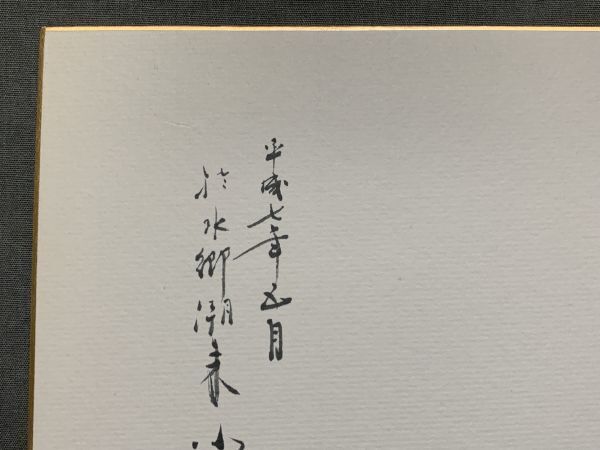 平成七年五月
於水郷潮来